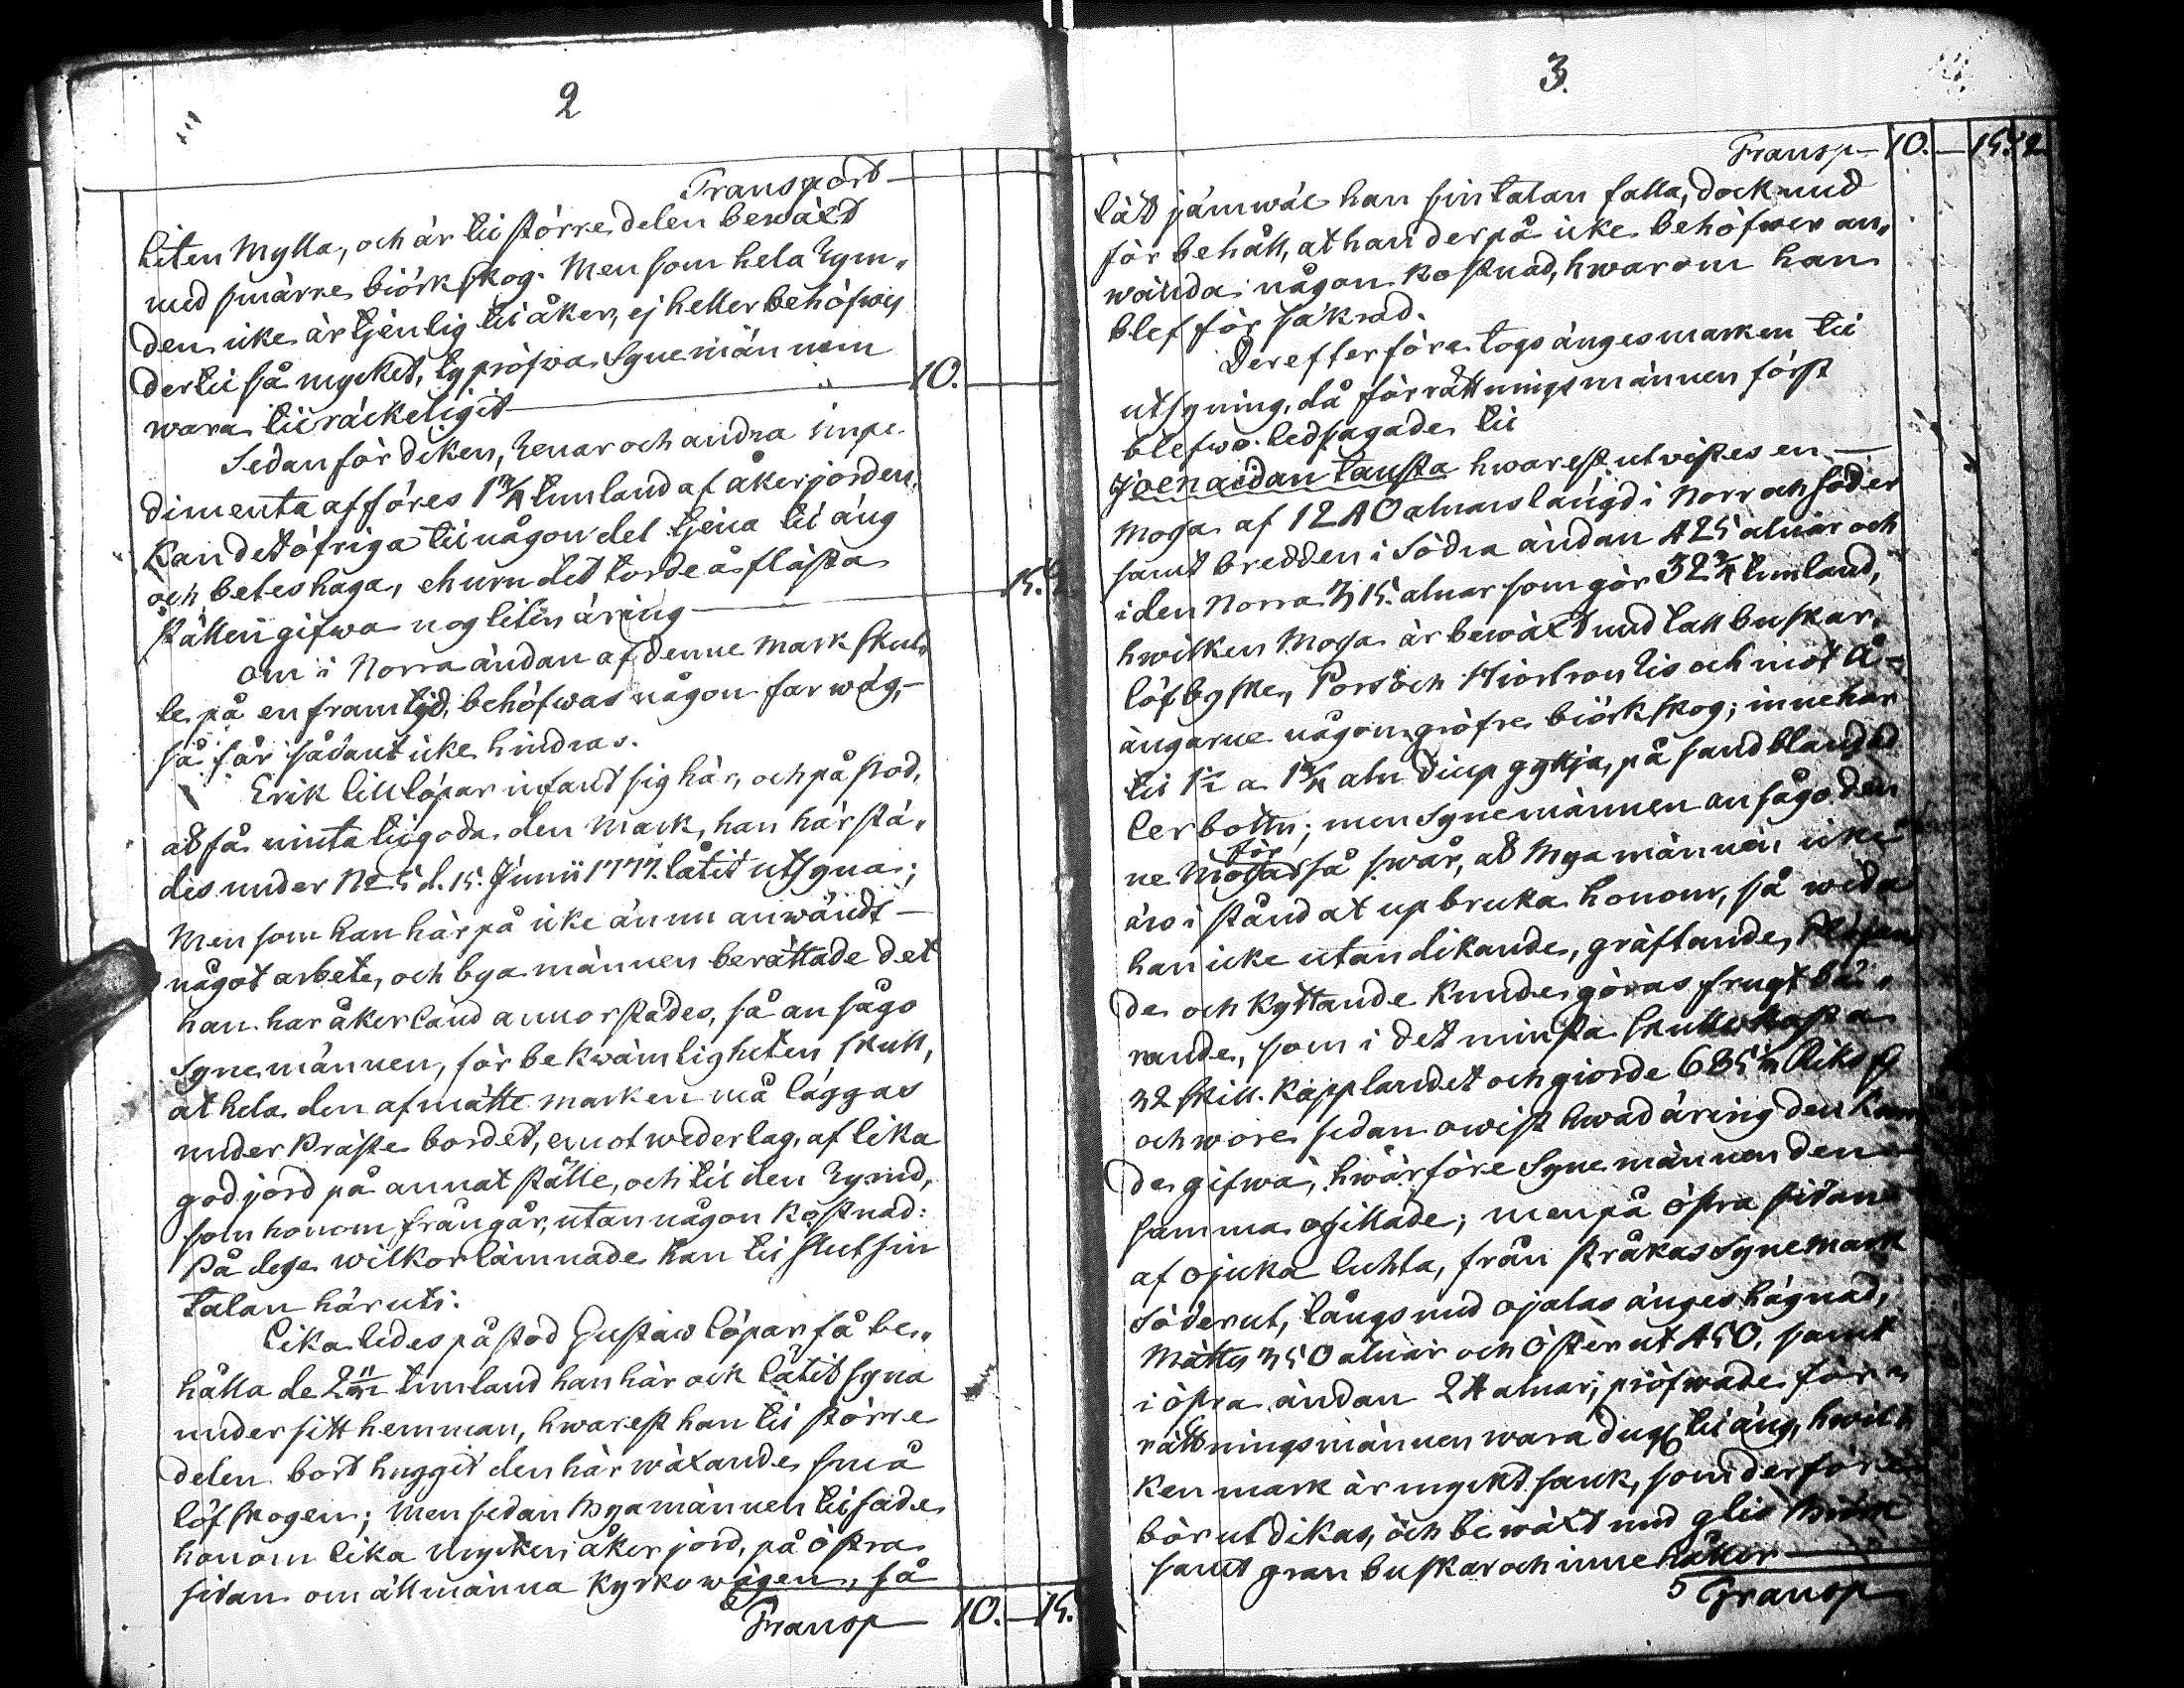 2
Transport
liten mylla, och är til större delen bewäxt
med smärre biörkskog. Men som hela rym„
den icke är tjenlig til åker, ej heller behöfwes
dertil så mycket, ty pröfwa Synemännerne
wara tilräckeligit 10.
Sedan för diken, renar och andra impe„
dimenta afföres 1 3/4 tunland af åkerjorden,
kan det öfriga til någon del tjena til äng
och beteshaga, ehuru det torde å flästa
ställen gifwa nog liten äring 15.
Om i Norra ändan af denne mark skul„
le på en framtid, behöfwas någon farwäg,
så får sådant icke hindras.
Erik lill löpar infant sig här, och påstod,
at få niuta tilgoda den mark, han härstä„
des under No 5 d. 15. Junii 1777. låtit utsyna;
Men som han härpå icke ännu anwändt
något arbete, och byamännen berättade det
han har åkerland annorstädes, så ansågo
Synemännen, för bekwämligheten skull,
at hela den afmätte marken må läggas
under Prästebordet, emot wederlag, af lika
god jord på annat ställe, och til den rymd,
som honom frångår, utan någon kostnad:
På desse wilkor lämnade han til slut sin
talan häruti.
Likaledes påstod Gustaw löpar få be„
hålla de 2 tunland han här ock låtit syna
under sitt hemman, hwarest han til större
delen borthuggit den här wäxande små
löfskogen; men sedan byamännen tilsade
honom lika mycken åkerjord, på östra
sidan om allmänna kyrkowägen, så
Transp 10. — 15.
3.
Transp 10. — 15. 12
lät jämwäl han sin talan falla, dock med
förbehåll, at han derpå icke behöfwer an„
wända någon kostnad, hwarom han
blef försäkrad.
Derefter företogs ängesmarken til
utsyning, då förrättningsmännen först
blefwo ledsagade til
Joenaidan tausta hwarest utvistes en
moga af 1240 alnars längd i Norr och söder
samt bredden i Södra ändan 425 alnar och
i den Norra 315. alnar som gör 32 3/4 tunland,
hwilken Moga är bewäxt med tall buskar,
löfbyske, Pors och Hiortron lis och mot Å„
ängarne någon gröfre biörkskog; innehar
til 1 1/2 a 1 3/4 aln diup gyttja, på sandblandad
lerbotten; men Synemännen ansågo den„
ne Moga för så swår, at byamännen icke
äro i stånd at upbruka honom, så wida
han icke utan dikande, gräftande,
de och kyttande kunde göras frugtbä„
rande, som i det minsta skulle kosta
32 skill. kapplandet och giorde 685 Riksd
och wore sedan owist hwad äring den kun„
de gifwa, hwarföre Synemännen den„
samma ogillade; men på östra sidan
af ojuka luhta, från stråkas Synemark
söderut, långs med ojalas änges hägnad,
mättes 350 alnar och öster ut 450, samt
i östra ändan 24 alnar; pröfwade för„
rättningsmännen wara dugl. til äng, hwil„
ken mark är mycket sank, som derföre
bör utdikas, och bewäxt med gles biörk
samt gran buskar och innehåller
5 Transp